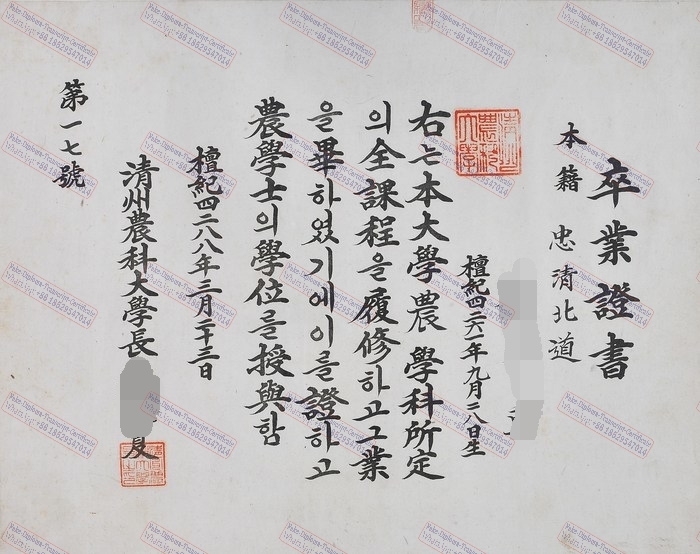 卒業證書
本籍 忠淸北道
檀紀四二六一年九月二八日生
右는本大學農 學科所定
의全課程을履修하고그業
을畢하였기에이를證하고
農學士의學位를授與함
檀紀四二八八年三月二十三日
淸州農科大學長
夏
第一七號